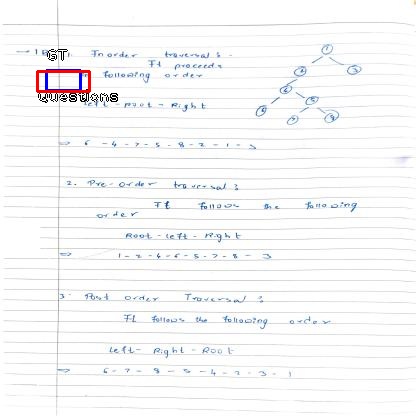 1. Inorder traversal :-
It proceeds
in following order
GT
Questions
Left - Root - Right
⇒ 6 - 4 - 7 - 5 - 8 - 2 - 1 - 3
2. Pre-order traversal :
It follows the following
order
Root - Left - Right
⇒ 1 - 2 - 4 - 6 - 5 - 7 - 8 - 3
3. Post order Traversal :
It follows the following order
Left - Right - Root
⇒ 6 - 7 - 8 - 5 - 4 - 2 - 3 - 1
1
3
5
7
8